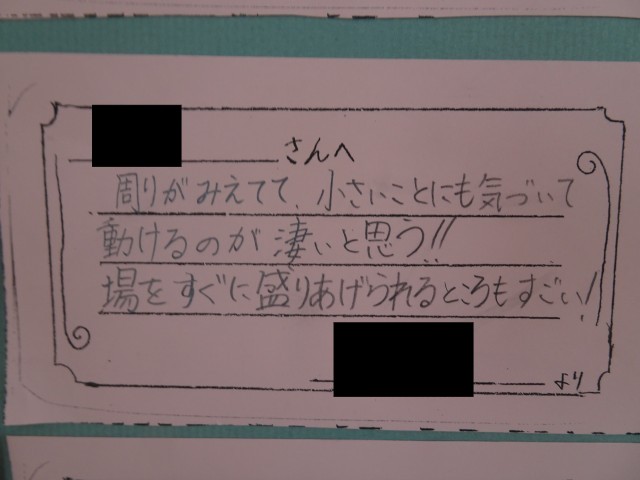 さんへ
周りがみえてて、小さいことにも気づいて
動けるのが凄いと思う!!
場をすぐに盛りあげられるところもすごい!
より